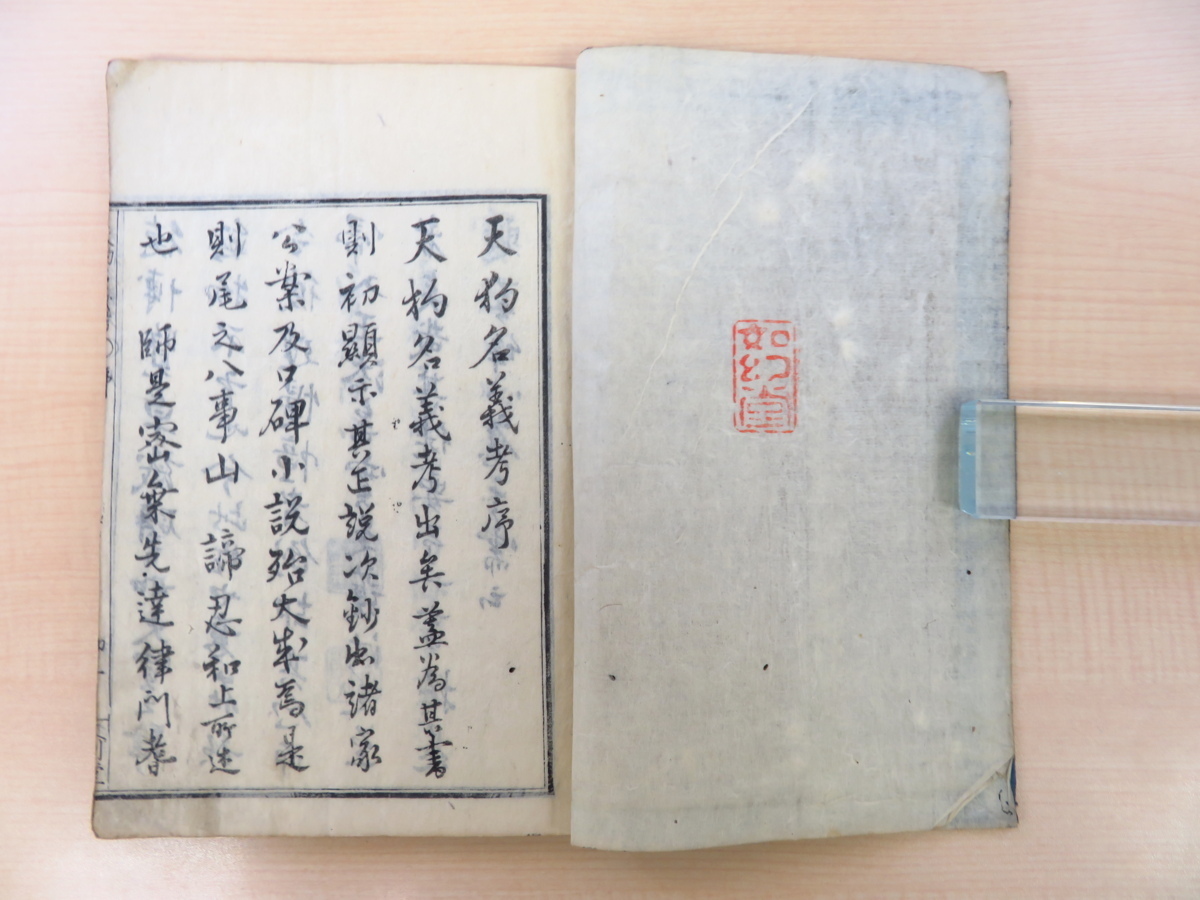 如幻堂
天狗名義考序
天狗名義考出矣蓋為其書
則初顯示其正說次鈔出諸家
公案及口碑小說殆大成焉是
則尾之八事山諦忍和上所述
也師是密乘先達律門耆